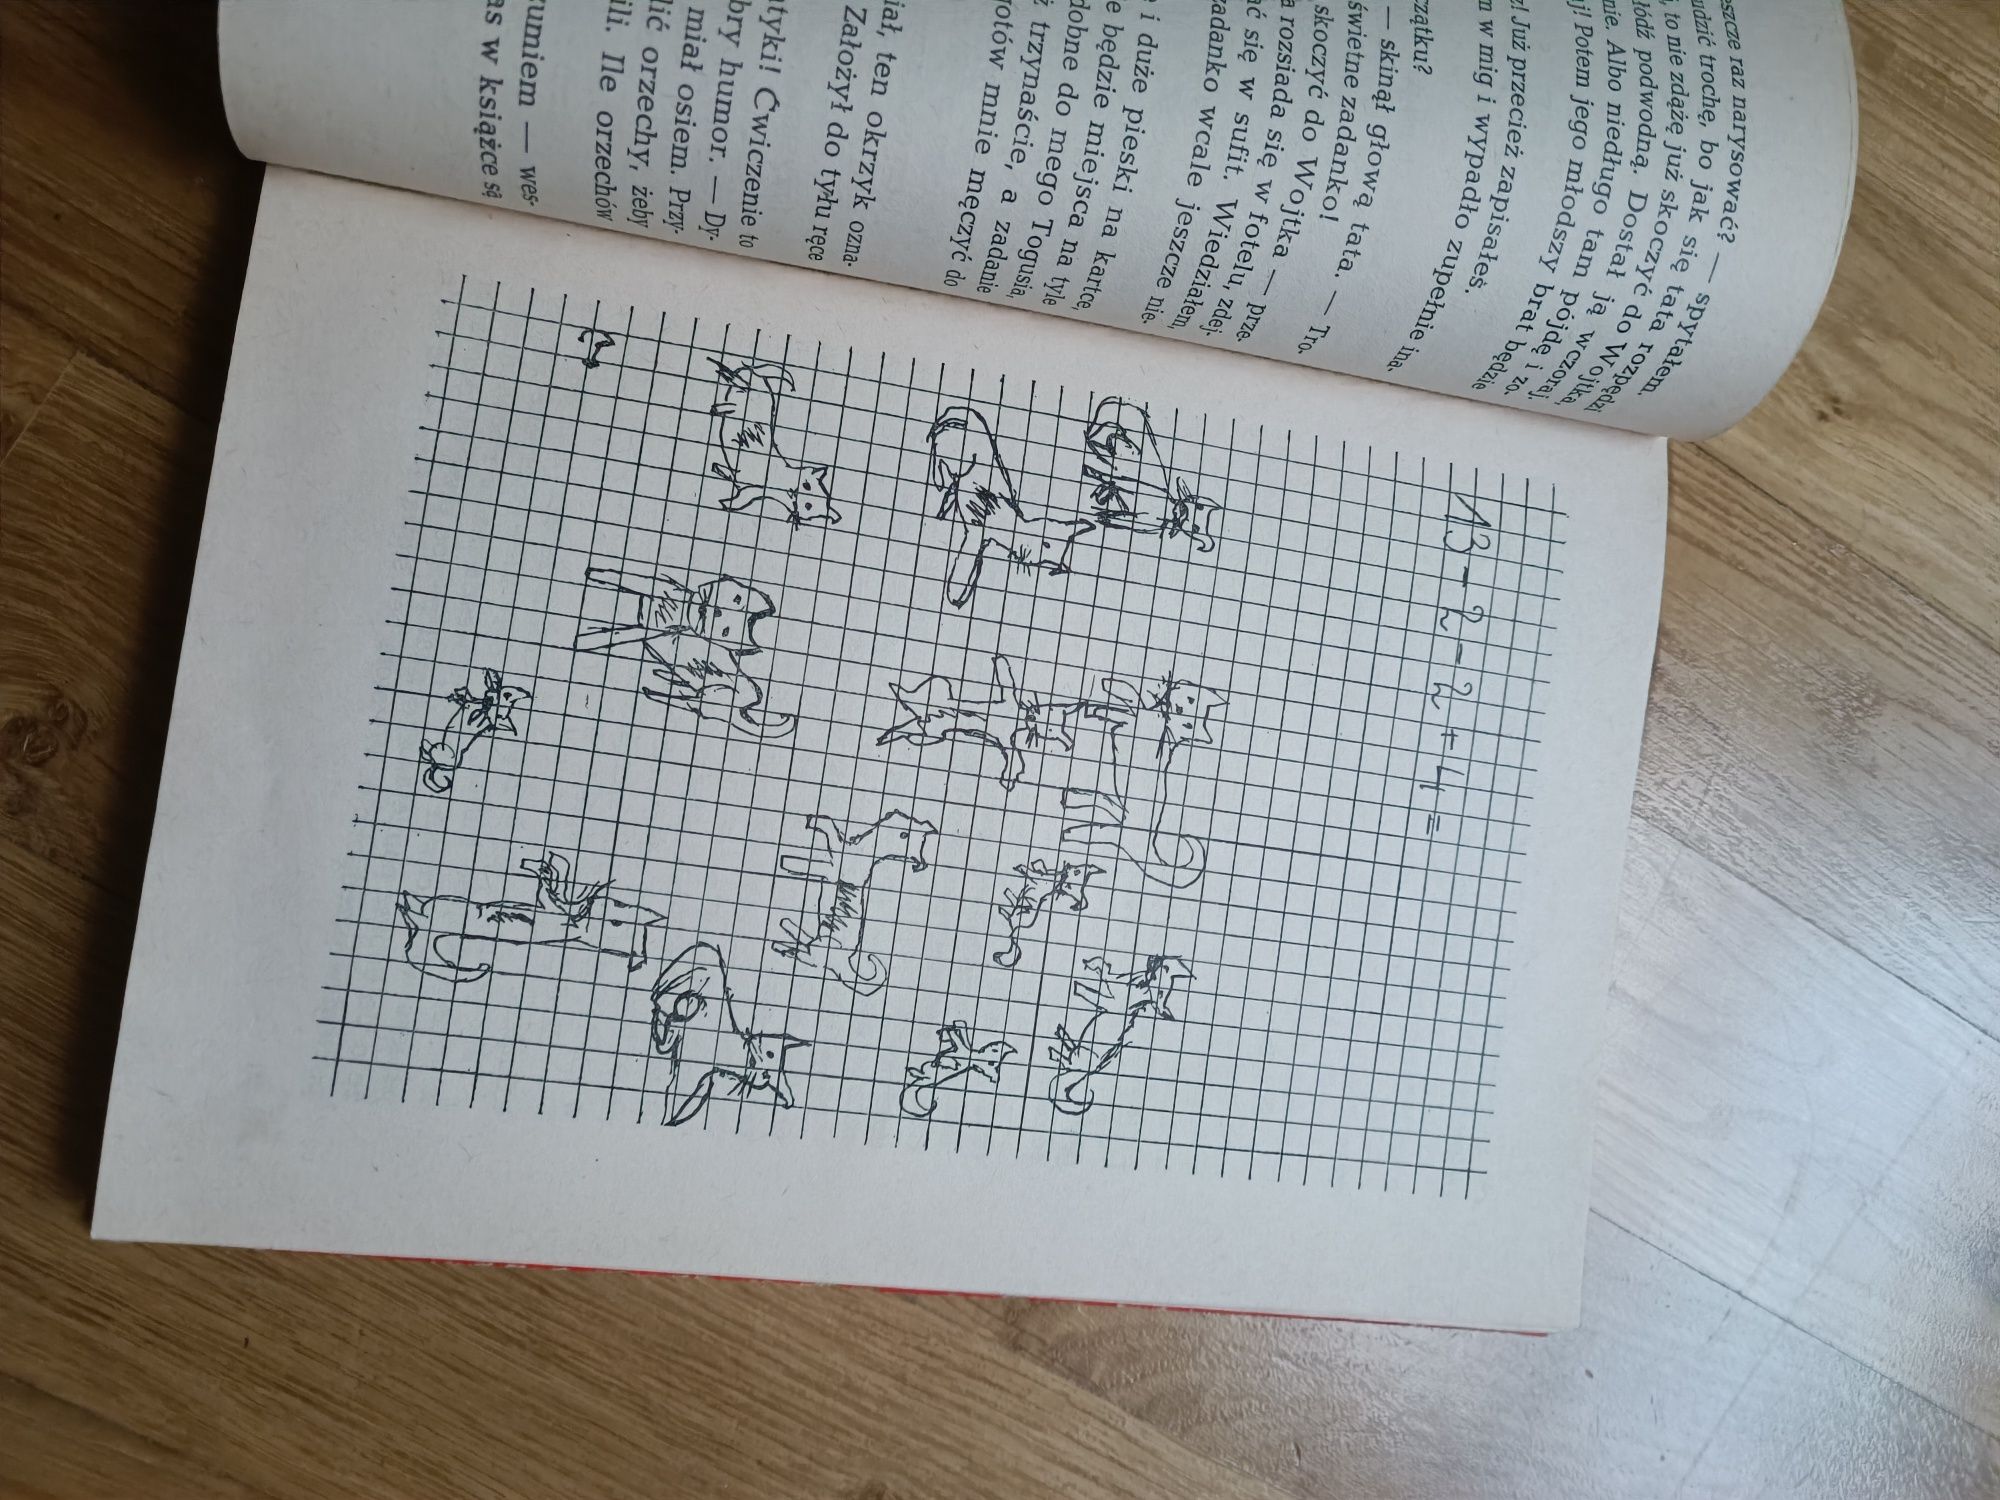 eszcze raz narysować? — spytałem.
udzić trochę, bo jak się tata rozpędzi
, to nie zdążę już skoczyć do Wojtka,
łódź podwodną. Dostał ją wczoraj.
nie. Albo niedługo tam pójdę i zo-
j! Potem jego młodszy brat będzie
! Już przecież zapisałeś.
m w mig i wypadło zupełnie ina-
czątku?
— skinął głową tata. — Tro-
świetne zadanko!
skoczyć do Wojtka — prze-
a rozsiada się w fotelu, zdej-
ać się w sufit. Wiedziałem,
zadanko wcale jeszcze nie.
i duże pieski na kartce,
e będzie miejsca na tyle
dobne do mego Togusia,
ż trzynaście, a zadanie
gotów mnie męczyć do
iał, ten okrzyk ozna-
Założył do tyłu ręce
atyki! Ćwiczenie to
bry humor. — Dy-
miał osiem. Przy-
lić orzechy, żeby
ili. Ile orzechów
zumiem — wes-
as w książce są
13 - 2 - 2 + 4 =